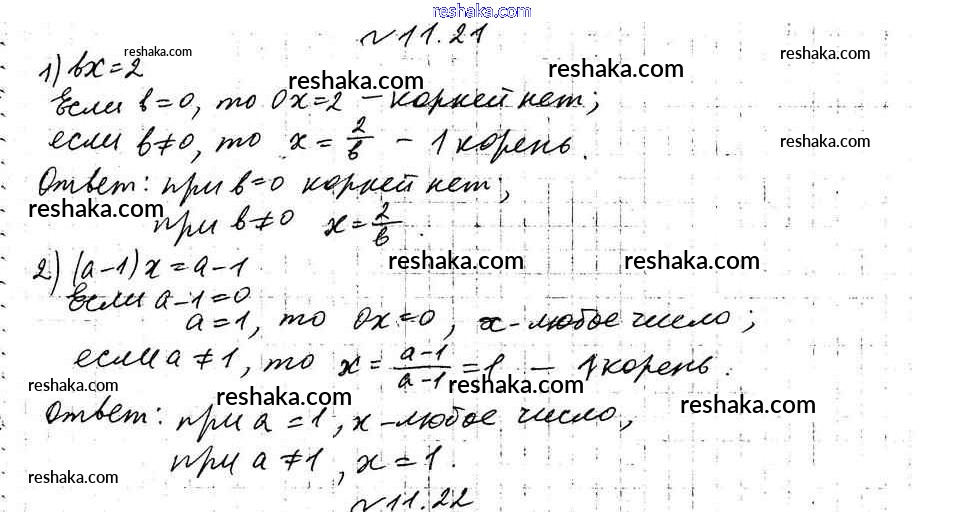 reshaka.com
№11.21
reshaka.com
1) bx=2
reshaka.com
reshaka.com
reshaka.com
Если b=0, то 0x=2 – корней нет;
если b≠0, то x=2/b – 1 корень.
reshaka.com
Ответ: при b=0 корней нет;
reshaka.com
при b≠0 x=2/b.
2) (a-1)x=a-1
reshaka.com
reshaka.com
Если a-1=0
a=1, то 0x=0, x-любое число;
если a≠1, то x=a-1/a-1=1 – 1 корень.
reshaka.com
reshaka.com
reshaka.com
Ответ: при a=1, x-любое число,
reshaka.com
reshaka.com
при a≠1, x=1.
reshaka.com
reshaka.com
№11.22